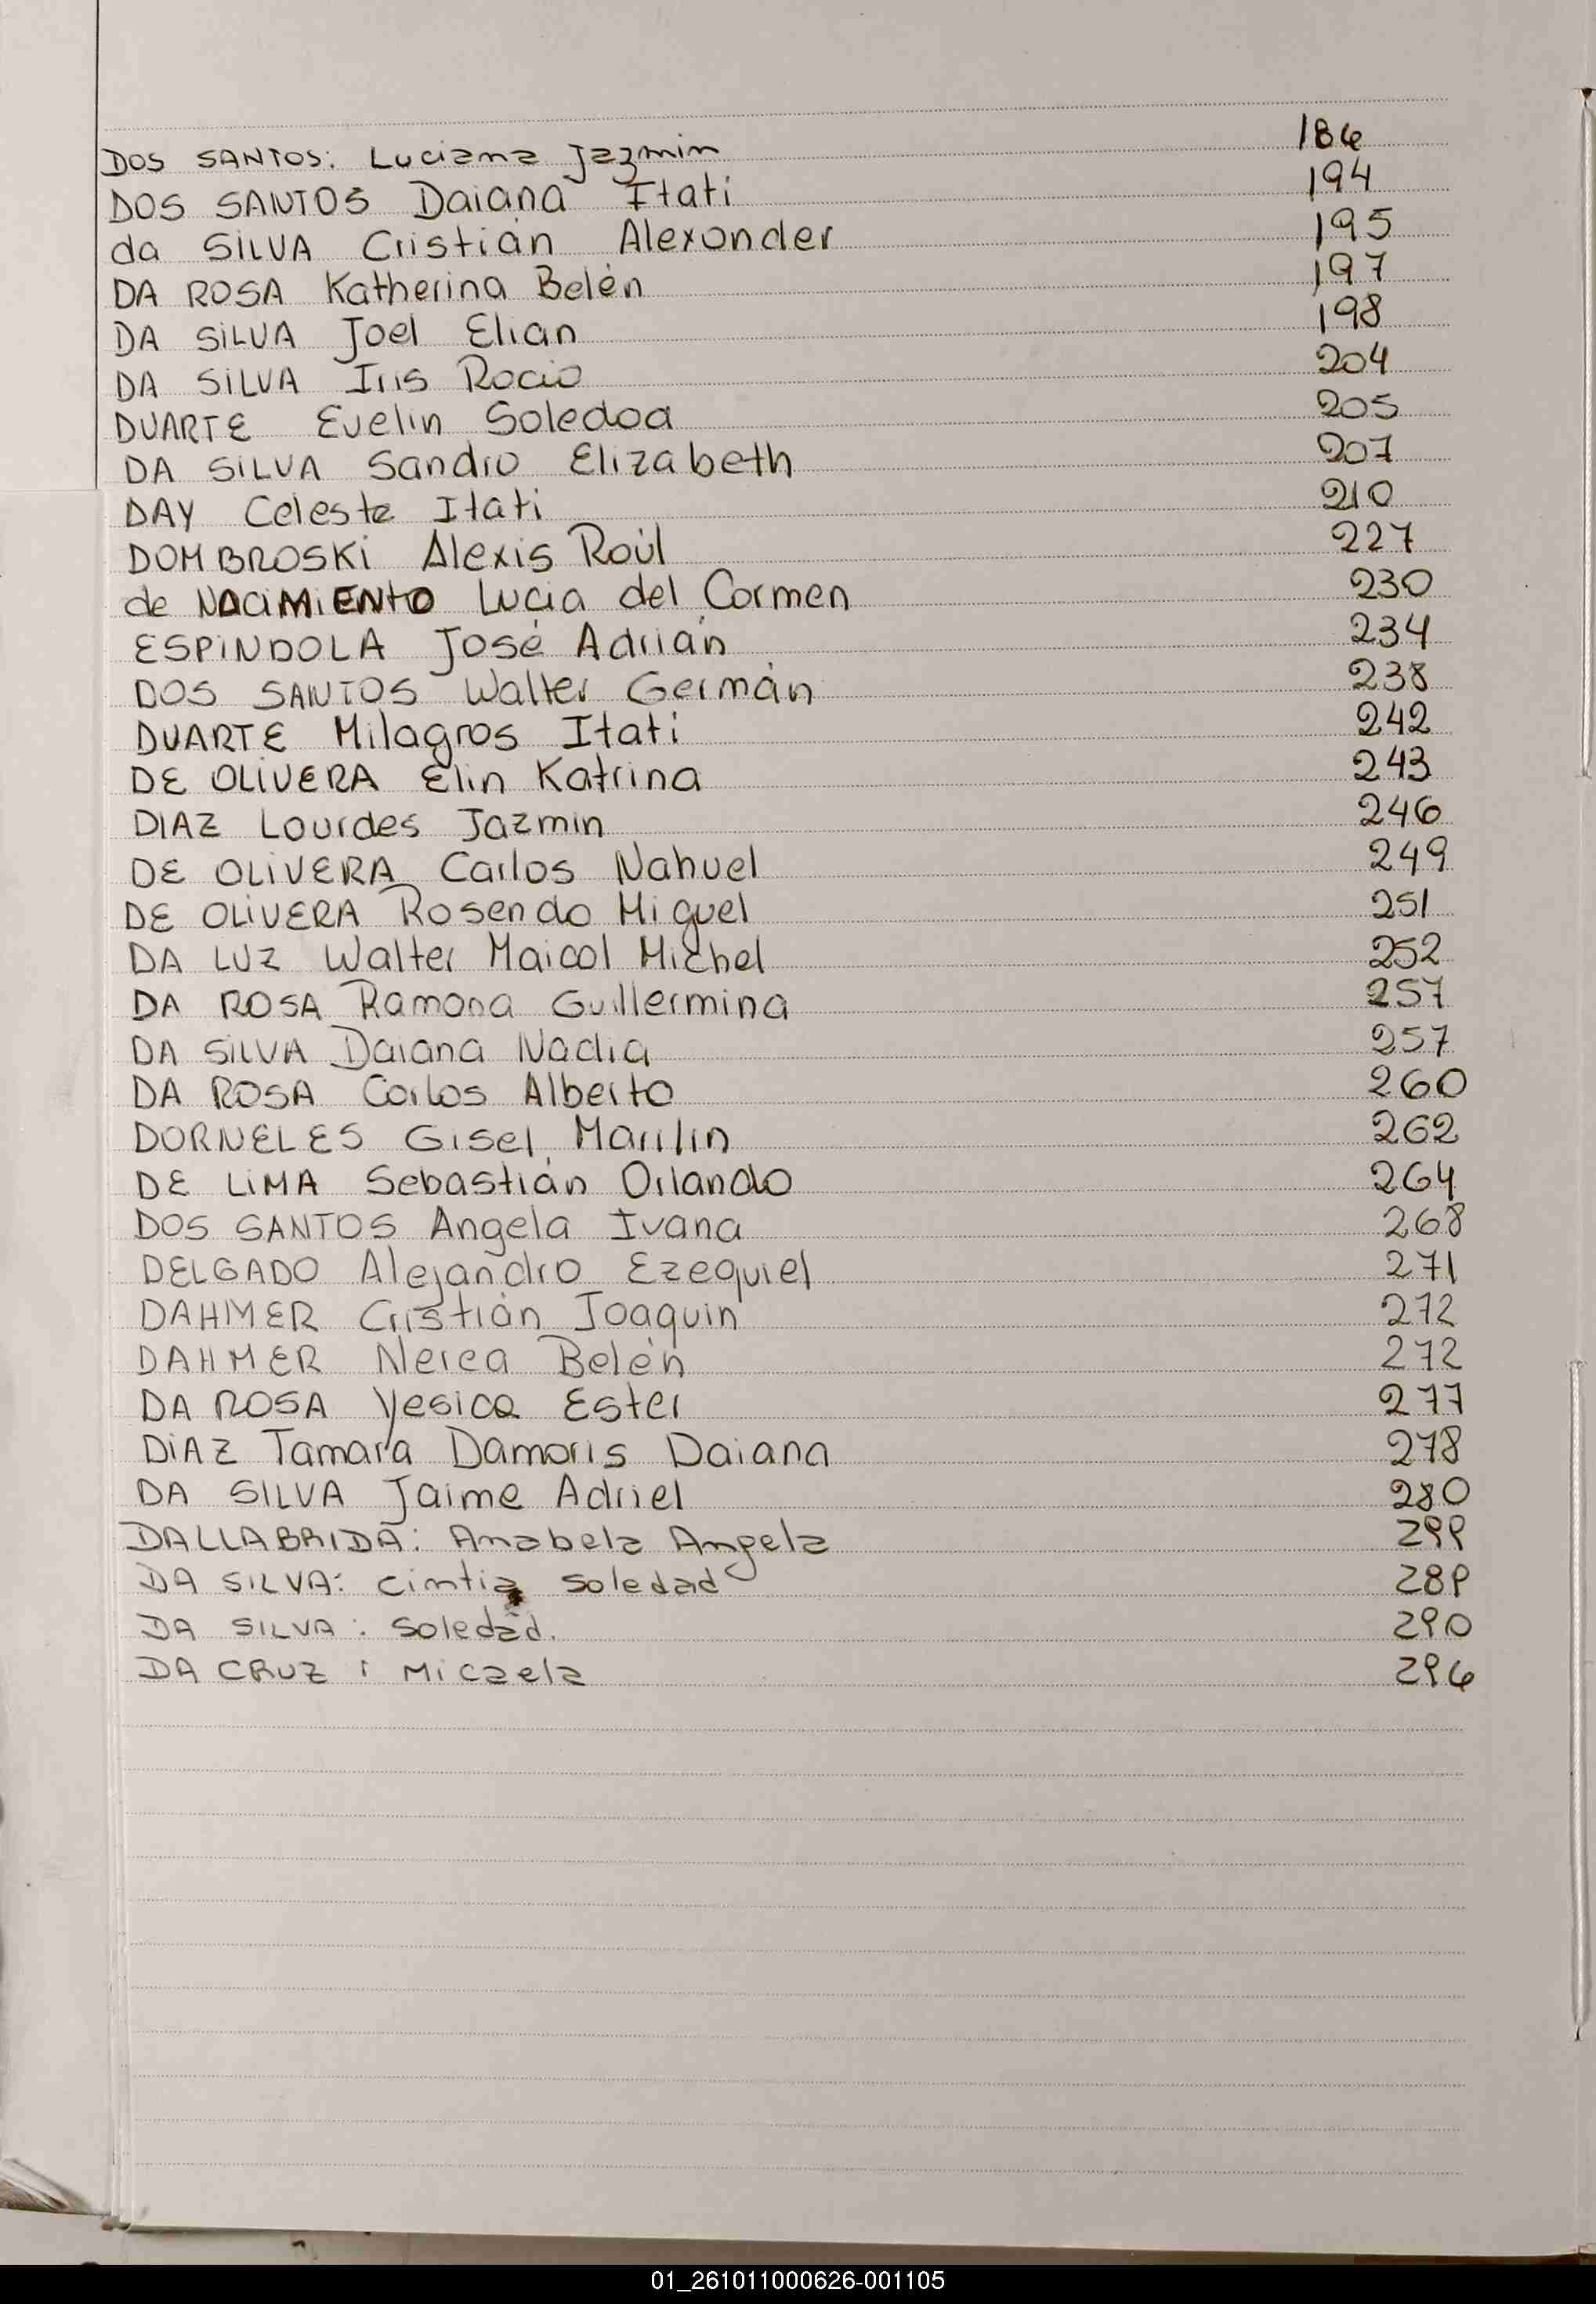 DOS SANTOS: Luciana Jazmin 186
DOS SANTOS Daiana Itati 194
da SILVA Cristián Alexander 195
DA ROSA Katherina Belén 197
DA SILVA Joel Elian 198
DA SILVA Iris Rocio 204
DUARTE Evelin Soledoa 205
DA SILVA Sandro Elizabeth 207
DAY Celeste Itati 210
DOMBROSKI Alexis Raúl 227
de NACIMIENTO Lucia del Carmen 230
ESPINDOLA José Adrián 234
DOS SANTOS Walter Germán 238
DUARTE Milagros Itati 242
DE OLIVERA Elin Katrina 243
DIAZ Lourdes Jazmin 246
DE OLIVERA Carlos Nahuel 249
DE OLIVERA Rosendo Miguel 251
DA LUZ Walter Maicol Michel 252
DA ROSA Ramona Guillermina 257
DA SILVA Daiana Nadia 257
DA ROSA Carlos Alberto 260
DORNELES Gisel Marilin 262
DE LIMA Sebastián Orlando 264
DOS SANTOS Angela Ivana 268
DELGADO Alejandro Ezequiel 271
DAHMER Cristián Joaquin 272
DAHMER Nerea Belén 272
DA ROSA Yesica Ester 277
DIAZ Tamara Damaris Daiana 278
DA SILVA Jaime Adriel 280
DALLABRIDA: Anabela Angela 299
DA SILVA: Cintia Soledad 289
DA SILVA: Soledad. 290
DA CRUZ: Micaela 296
01_261011000626-001105